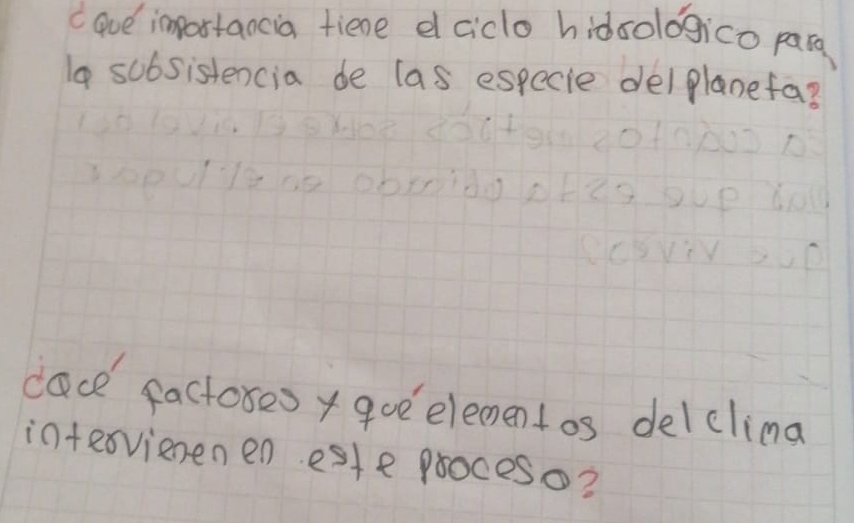 ¿Qué importancia tiene el ciclo hidrológico para
la subsistencia de las especie del planeta?
¿qué factores y qué elementos del clima
intervienen en este proceso?